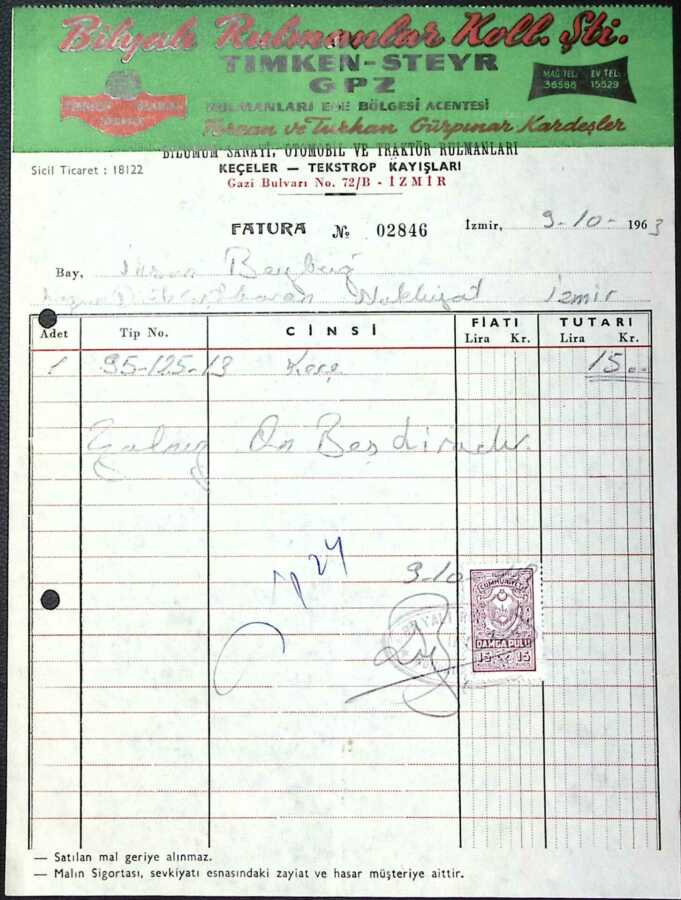 Bilyalı Rulmanlar Koll. Şti.
TIMKEN-STEYR
GPZ
MAĞ TEL: 36588 EV TEL: 15529
RULMANLARI EGE BÖLGESİ ACENTESİ
Tercan ve Turhan Gürpınar Kardeşler
BİLUMUM SANAYİ, OTOMOBİL VE TRAKTÖR RULMANLARI
Sicil Ticaret : 18122
KEÇELER — TEKSTROP KAYIŞLARI
Gazi Bulvarı No. 72/B - İZMİR
FATURA № 02846
İzmir, 9-10-1963
Bay,
Nakliyat İzmir
Adet Tip No. CİNSİ FİATI TUTARI
Lira Kr. Lira Kr.
1 95-125-13 Keçe 15.00
Yalnız On Beş liradır.
CUMHURİYETİ
DAMGA PULU
15 15
— Satılan mal geriye alınmaz.
— Malın Sigortası, sevkiyatı esnasındaki zayiat ve hasar müşteriye aittir.